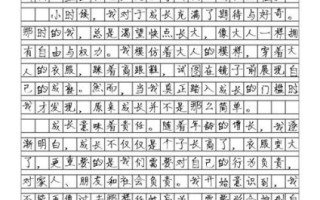 小时候，我对于成长充满了期待与好奇。
那时的我，总是渴望快点长大，像大人一样拥
有自由与权力。我模仿着大人的模样，穿着大
人的衣服，踩着高跟鞋，试图在镜子前展现自
己的成熟。然而，当我真正踏入成长的门槛时
我才发现，原来成长并不是那么简单。
成长意味着责任。随着年龄的增长，我逐
渐明白，成长不仅仅是个子长高了，衣服变大
了，更重要的是我们需要对自己的行为负责，
对家人、朋友和社会负责。我开始意识到，我